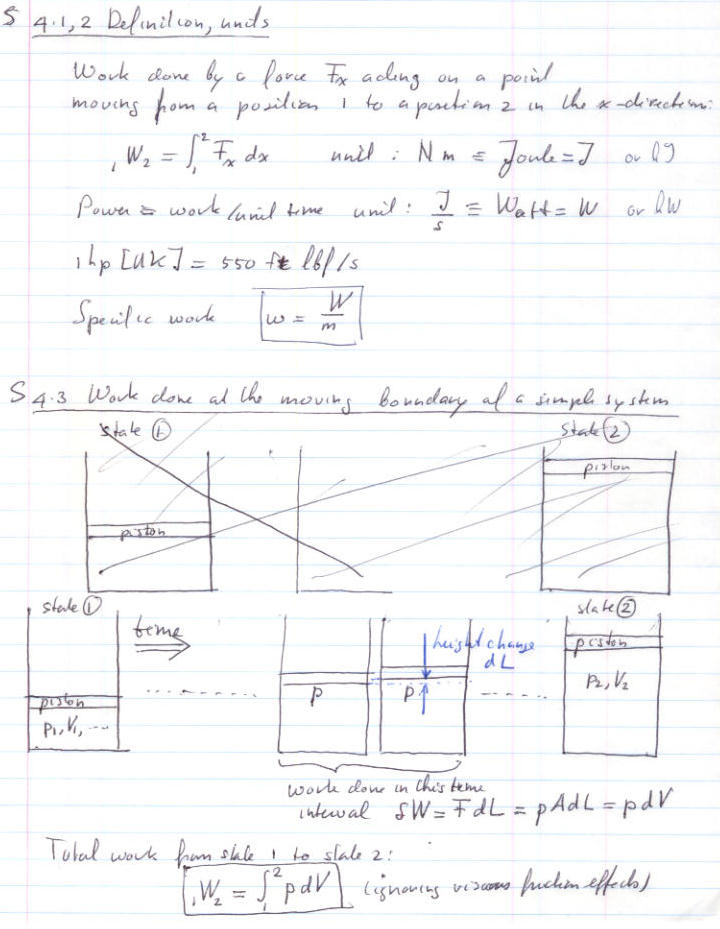 § 4.1,2 Definition, units
Work done by a force Fx acting on a point
moving from a position 1 to a position 2 in the x-direction:
₁W₂ = ∫₁² Fx dx unit : N m ≡ Joule = J or kJ
Power ≡ work/unit time unit : J/s ≡ Watt = W or kW
1 hp [UK] = 550 ft lbf/s
Specific work w = W/m
§ 4.3 Work done at the moving boundary of a simple system
state ① state ②
piston
piston
state ① time state ②
height change
dL
piston
piston
p₁, V₁, ...
p p
p₂, V₂
work done in this time
interval δW = F dL = p A dL = p dV
Total work from state 1 to state 2:
₁W₂ = ∫₁² p dV (ignoring viscous friction effects)